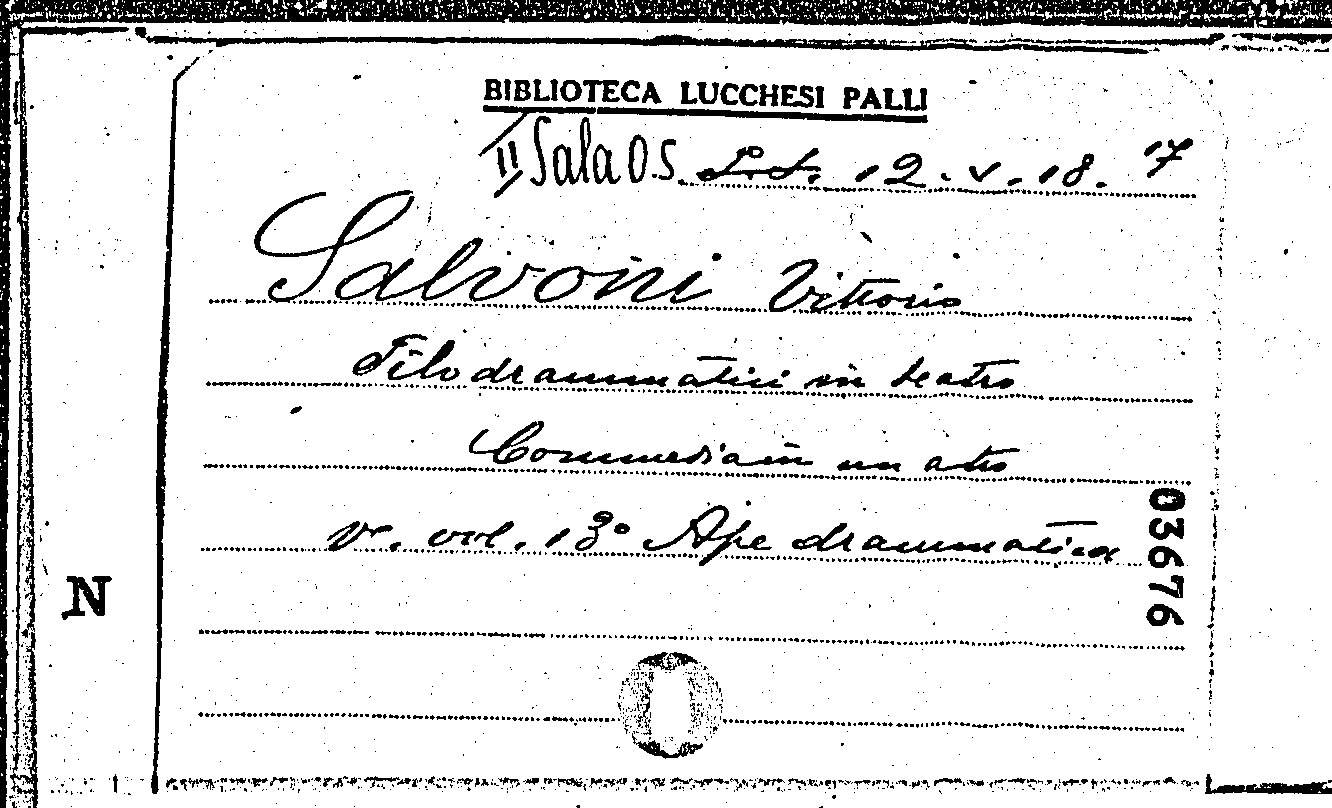 BIBLIOTECA LUCCHESI PALLI
II Sala O.S. 12. V. 18. 17
Salvoni Vittorio
Filodrammatici in teatro
Commedia in un atto
v. vol. 13° Ape drammatica
03676
N